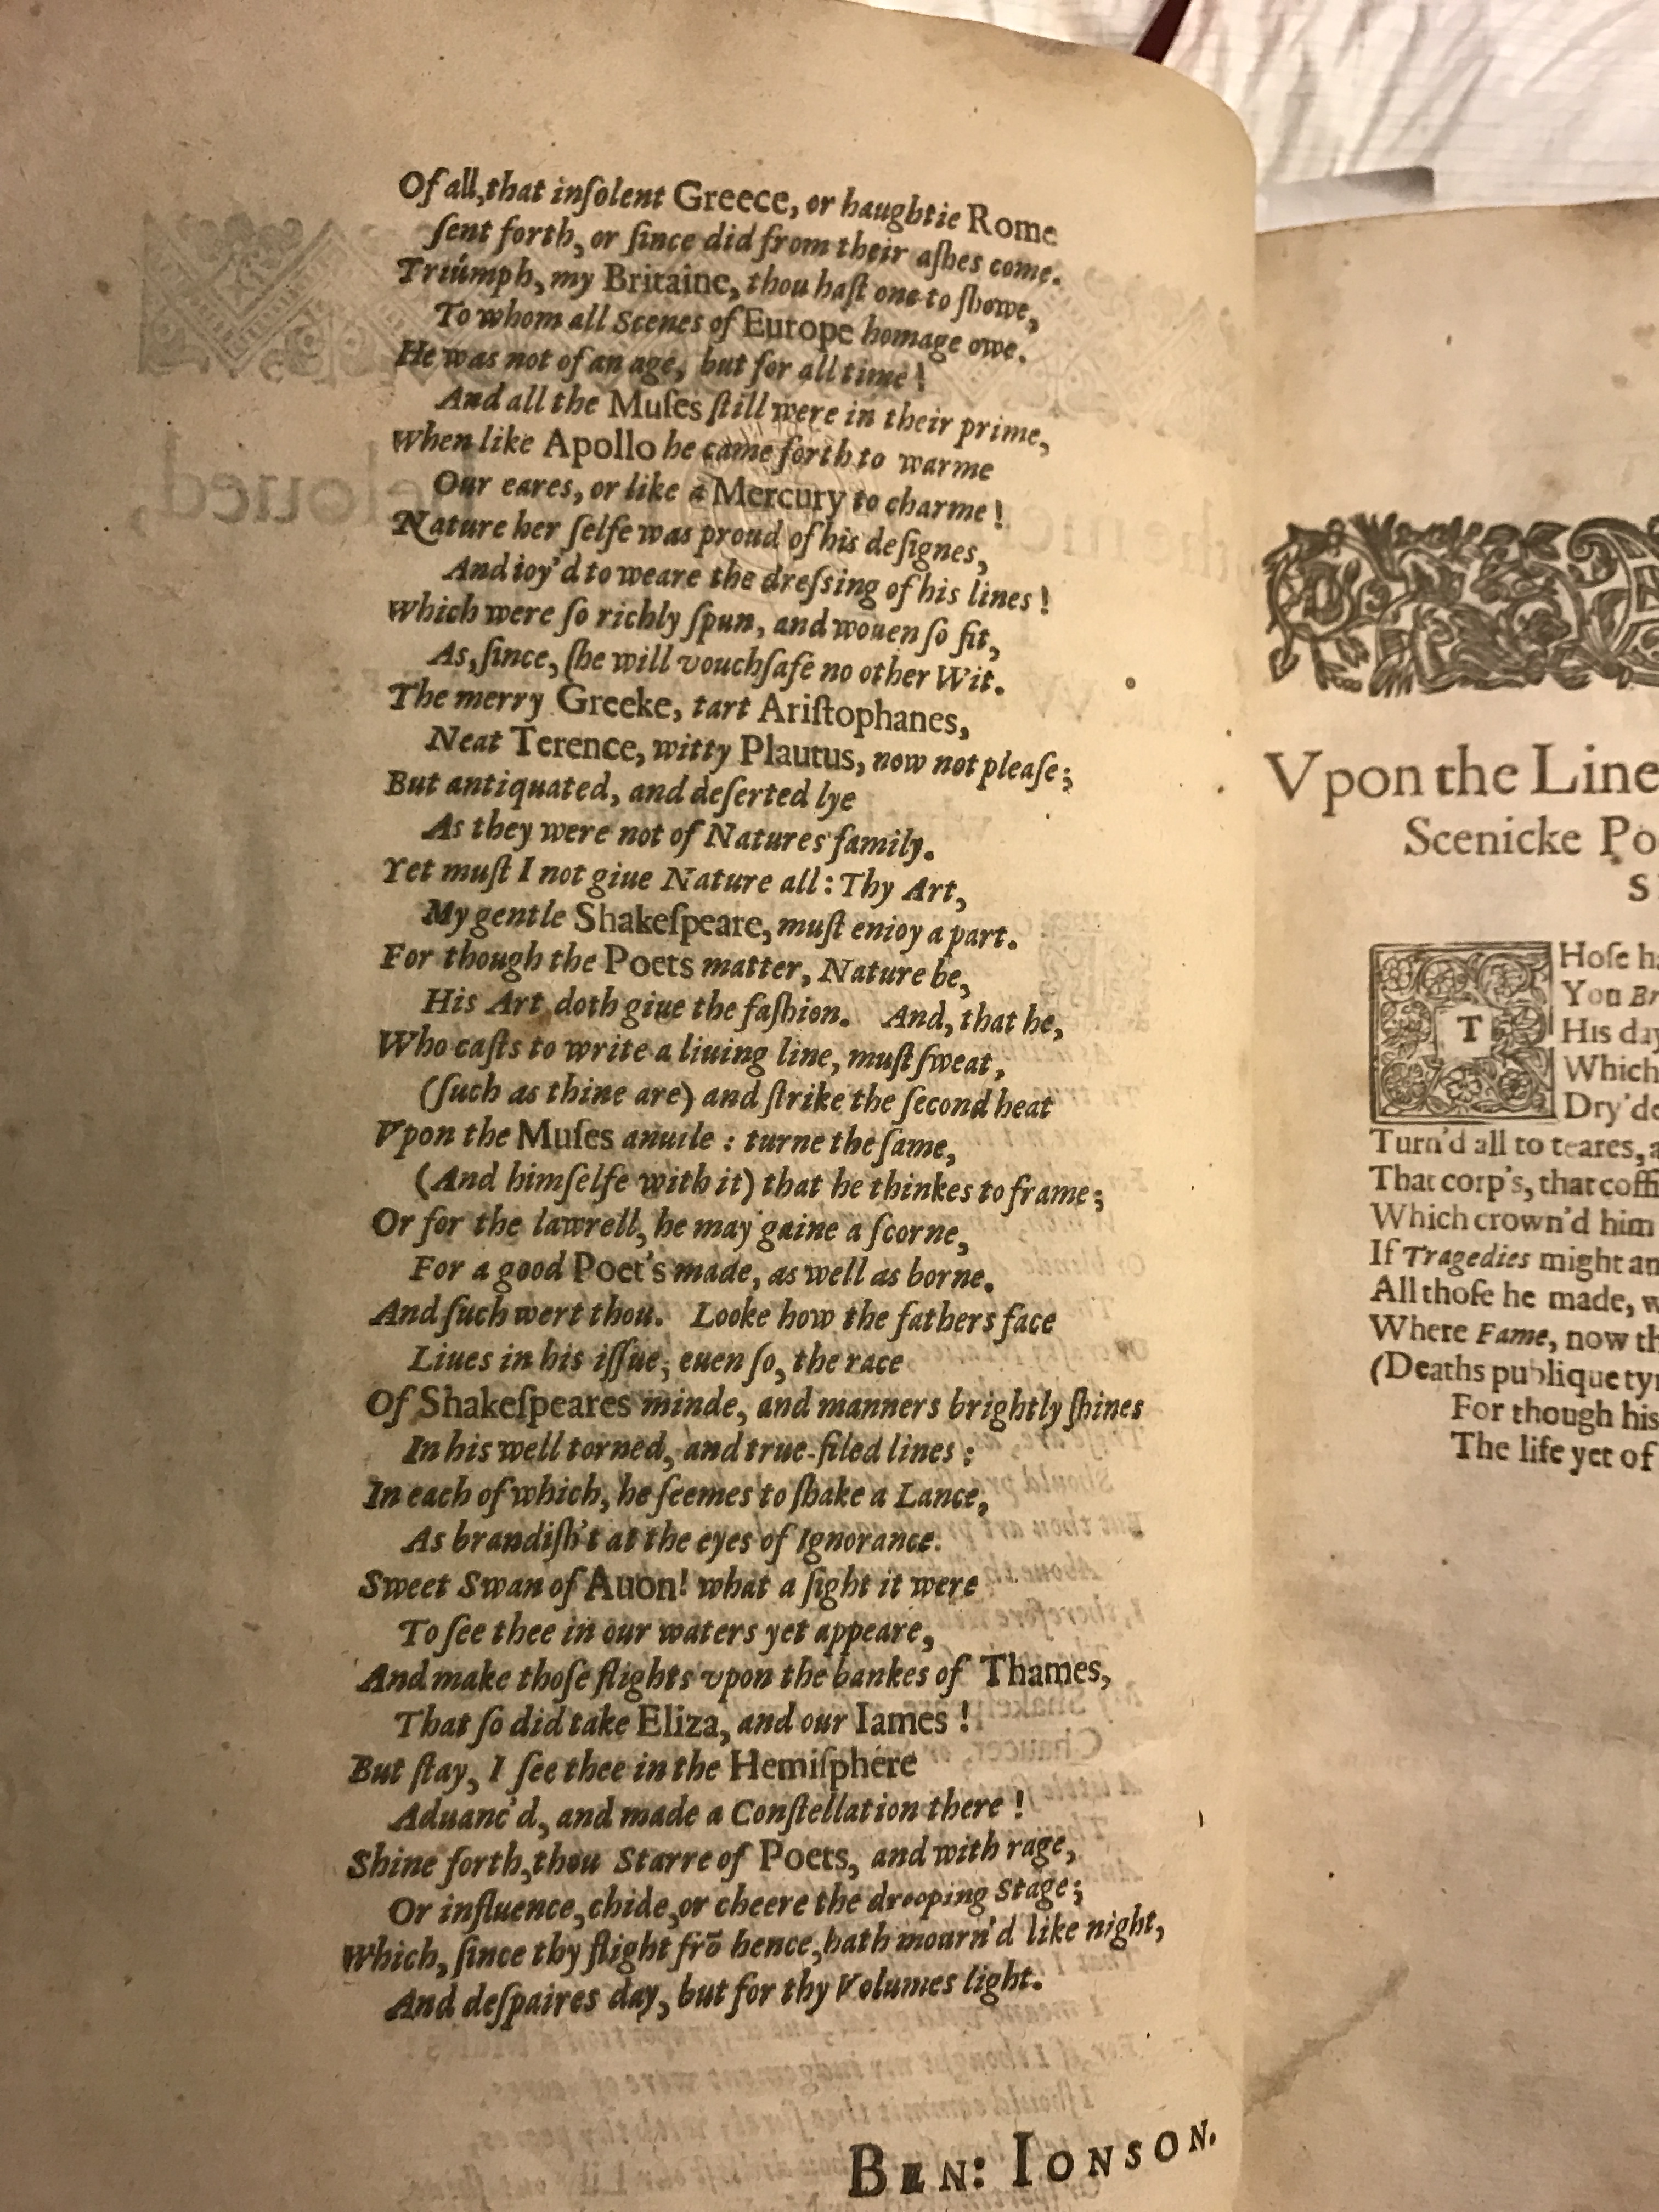 Of all, that inſolent Greece, or haughtie Rome
ſent forth, or ſince did from their aſhes come.
Triúmph, my Britaine, thou haſt one to ſhowe,
To whom all Scenes of Europe homage owe.
He was not of an age, but for all time!
And all the Muſes ſtill were in their prime,
When like Apollo he came forth to warme
Our eares, or like a Mercury to charme!
Nature her ſelfe was proud of his deſignes,
And ioy'd to weare the dreſſing of his lines!
Which were ſo richly ſpun, and wouen ſo fit,
As, ſince, ſhe will vouchſafe no other Wit.
The merry Greeke, tart Ariſtophanes,
Neat Terence, witty Plautus, now not pleaſe;
But antiquated, and deſerted lye
As they were not of Natures family.
Yet muſt I not giue Nature all: Thy Art,
My gentle Shakeſpeare, muſt enioy a part.
For though the Poets matter, Nature be,
His Art doth giue the faſhion. And, that he,
Who caſts to write a liuing line, muſt ſweat,
(ſuch as thine are) and ſtrike the ſecond heat
Vpon the Muſes anuile: turne the ſame,
(And himſelfe with it) that he thinkes to frame;
Or for the lawrell, he may gaine a ſcorne,
For a good Poet's made, as well as borne.
And ſuch wert thou. Looke how the fathers face
Liues in his iſſue, euen ſo, the race
Of Shakeſpeares minde, and manners brightly ſhines
In his well torned, and true-filed lines:
In each of which, he ſeemes to ſhake a Lance,
As brandiſh't at the eyes of Ignorance.
Sweet Swan of Auon! what a ſight it were
To ſee thee in our waters yet appeare,
And make thoſe flights vpon the bankes of Thames,
That ſo did take Eliza, and our Iames!
But ſtay, I ſee thee in the Hemiſphere
Aduanc'd, and made a Conſtellation there!
Shine forth, thou Starre of Poets, and with rage,
Or influence, chide, or cheere the drooping Stage;
Which, ſince thy flight frō hence, hath mourn'd like night,
And deſpaires day, but for thy Volumes light.
BEN: IONSON.
Vpon the Line
Scenicke Po
S
T
Hoſe h
You Br
His day
Which
Dry'de
Turn'd all to teares, a
That corp's, that coffi
Which crown'd him
If Tragedies might an
All thoſe he made, w
Where Fame, now th
(Deaths publique tyr
For though his
The life yet of